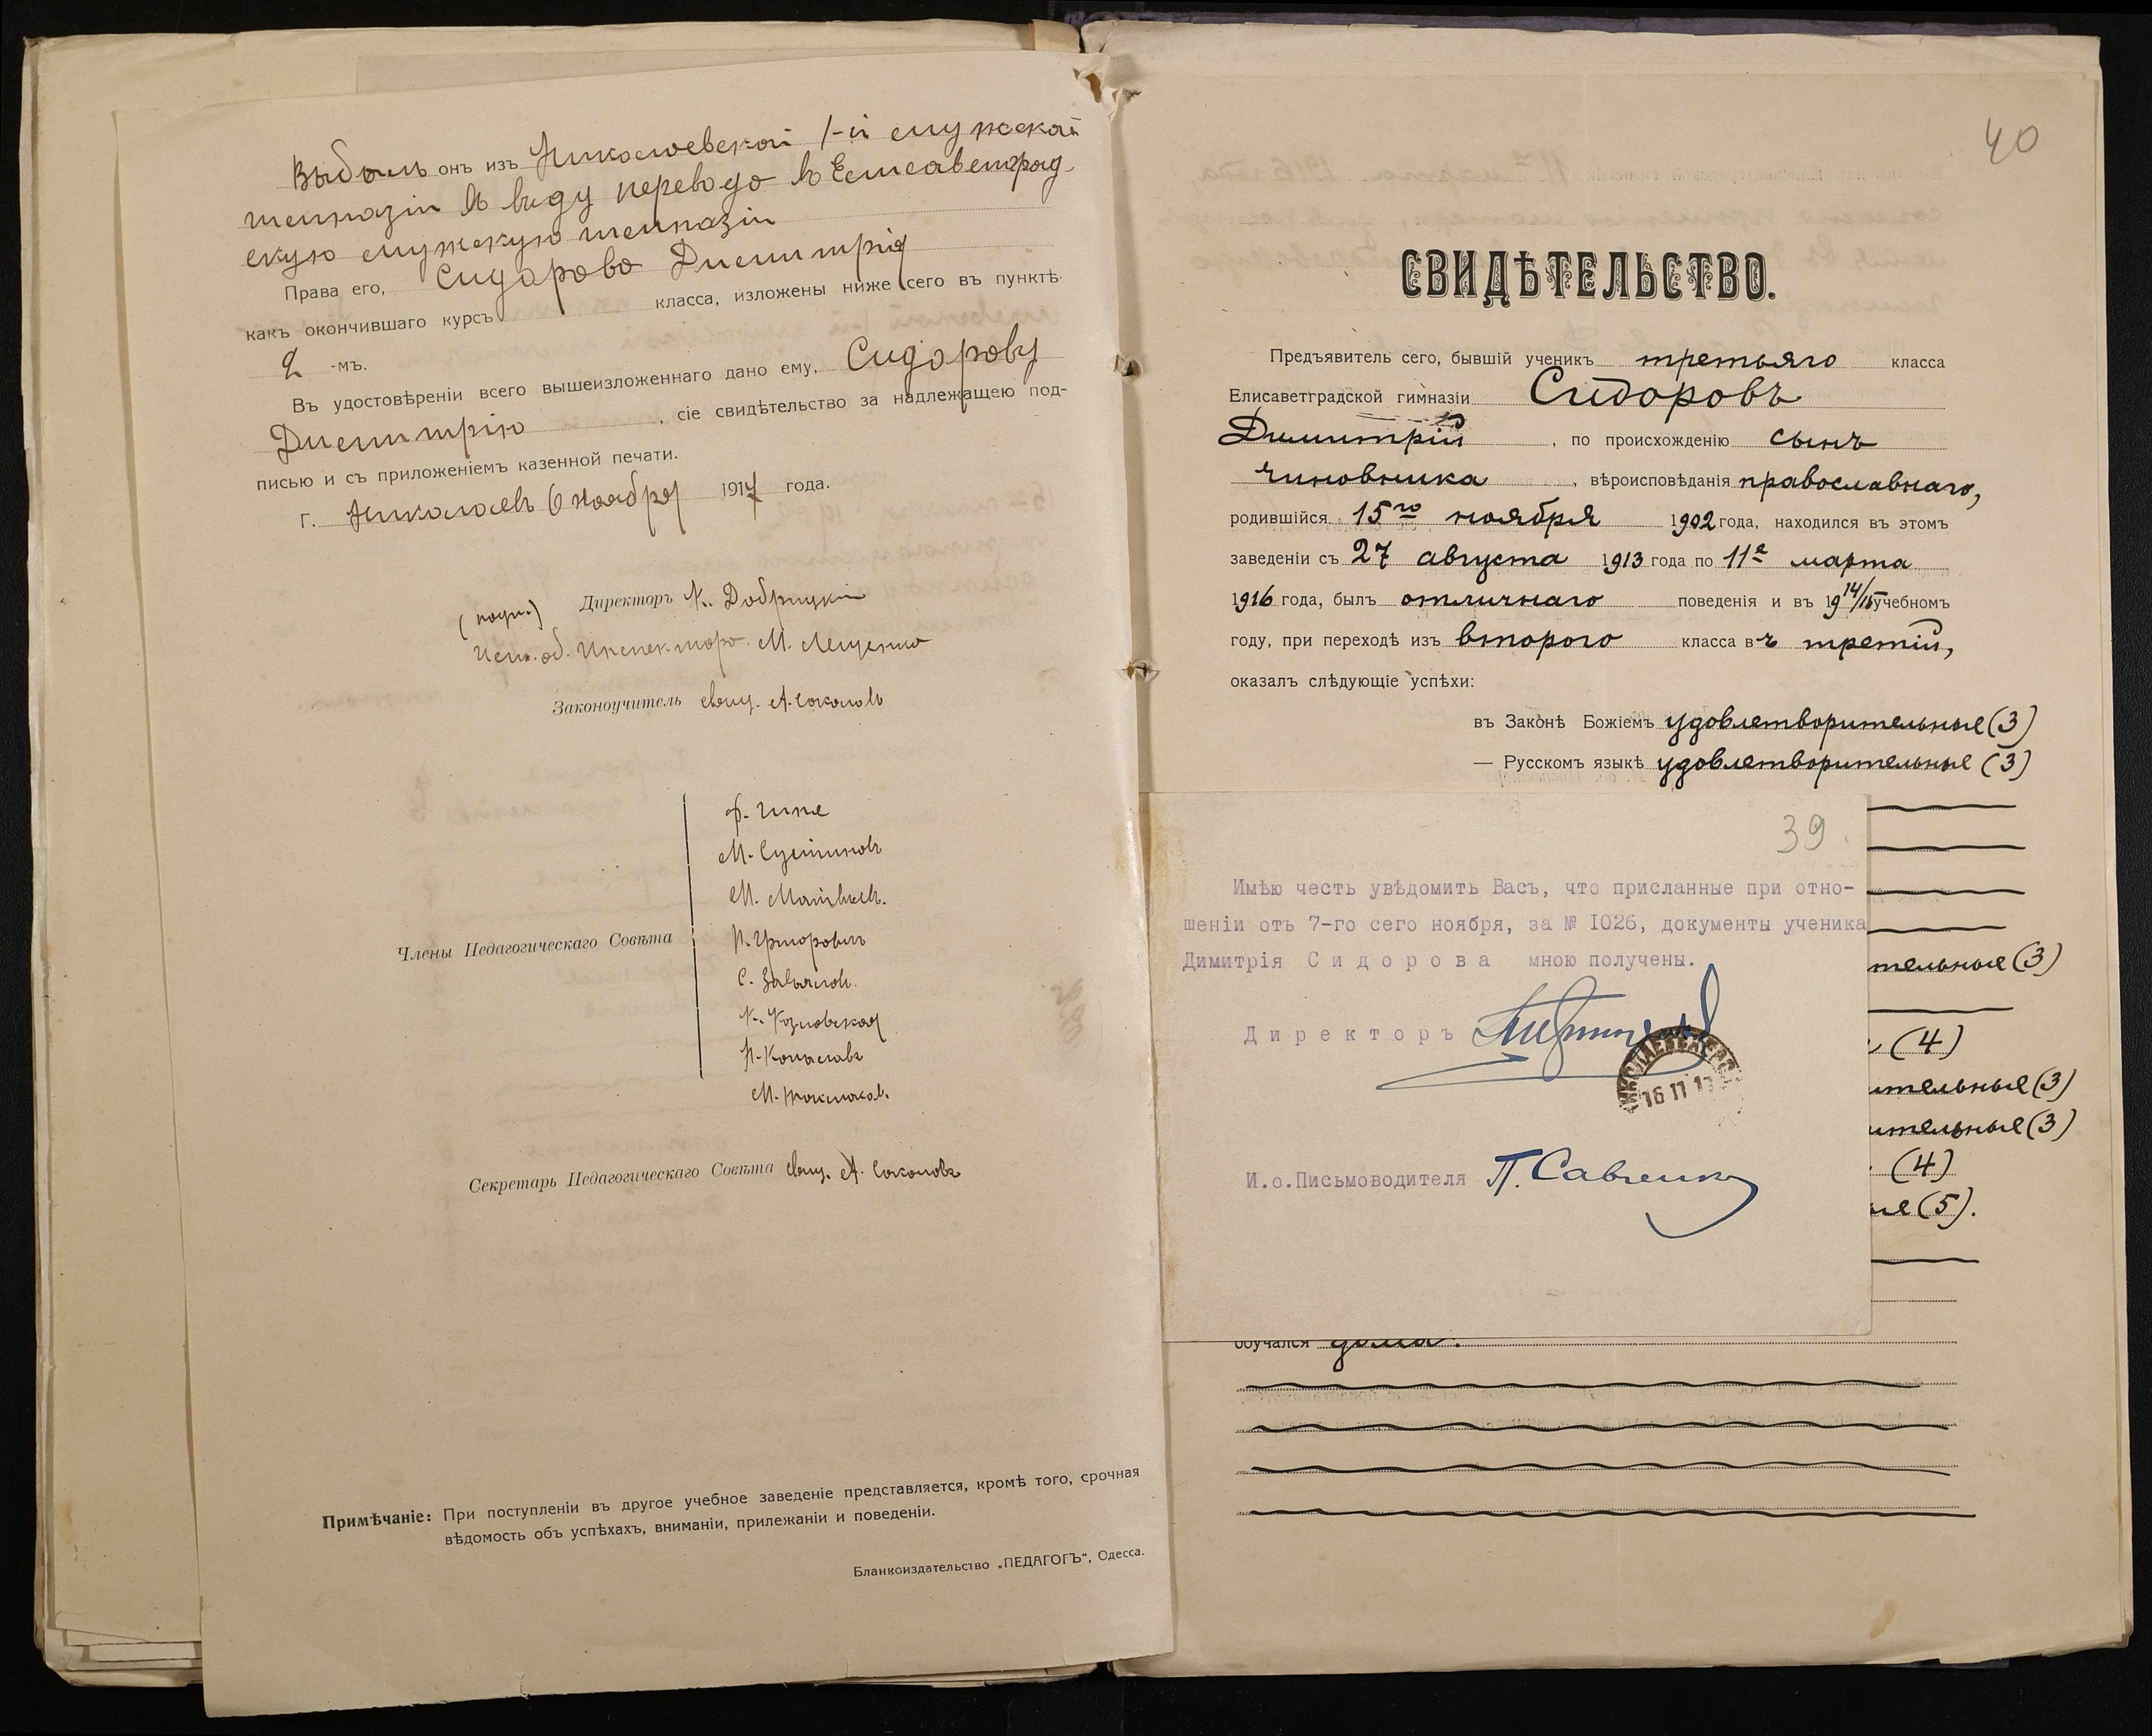 Выбылъ онъ изъ Николаевской 1-й мужской
гимназіи въ виду перевода въ Елисаветград-
скую мужскую гимназію
Права его, Сидорова Димитрія
какъ окончившаго курсъ класса, изложены ниже сего въ пунктѣ
2 -мъ.
Въ удостовѣреніи всего вышеизложеннаго дано ему, Сидорову
Димитрію, сіе свидѣтельство за надлежащею под-
писью и съ приложеніемъ казенной печати.
г. Николаевъ 6 ноября 1917 года.
(подп.) Директоръ К. Добрицкій
Исп. об. Инспектора М. Лещенко
Законоучитель свящ. А. Соколовъ
М. Матвѣевъ.
Члены Педагогическаго Совѣта
П. Григоровичъ
К. Козловская
Секретарь Педагогическаго Совѣта свящ. А. Соколовъ
Примѣчаніе: При поступленіи въ другое учебное заведеніе представляется, кромѣ того, срочная
вѣдомость объ успѣхахъ, вниманіи, прилежаніи и поведеніи.
Бланкоиздательство „ПЕДАГОГЪ“, Одесса.
40
СВИДѢТЕЛЬСТВО.
Предъявитель сего, бывшій ученикъ третьяго класса
Елисаветградской гимназіи Сидоровъ
Димитрій, по происхожденію сынъ
чиновника, вѣроисповѣданія православнаго,
родившійся 15го ноября 1902 года, находился въ этомъ
заведеніи съ 27 августа 1913 года по 11е марта
1916 года, былъ отличнаго поведенія и въ 1914/15 учебномъ
году, при переходѣ изъ второго класса въ третій,
оказалъ слѣдующіе успѣхи:
въ Законѣ Божіемъ удовлетворительные (3)
— Русскомъ языкѣ удовлетворительные (3)
39
Имѣю честь увѣдомить Васъ, что присланные при отно-
шеніи отъ 7-го сего ноября, за № 1026, документы ученика
Димитрія Сидорова мною получены.
тельные (3)
Директоръ
(4)
16 11 17
ительные (3)
ительные (3)
(4)
И.о.Письмоводителя П. Савченко
ые (5).
обучался дома.